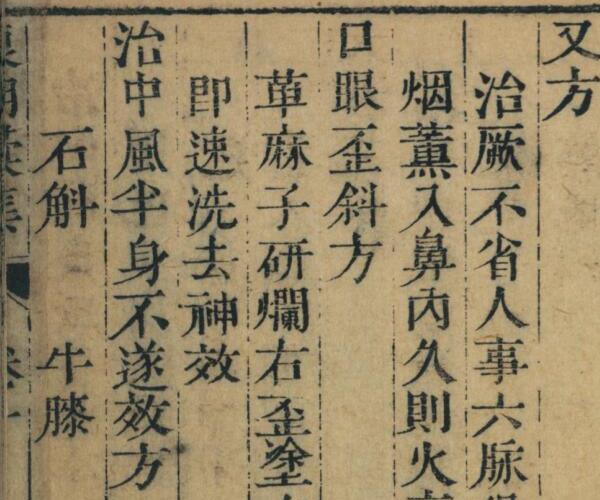 又方
治厥不省人事六脉
烟薰入鼻內久則火
口眼歪斜方
萆麻子研爛右歪塗
即速洗去神效
治中風半身不遂效方
石斛 牛膝